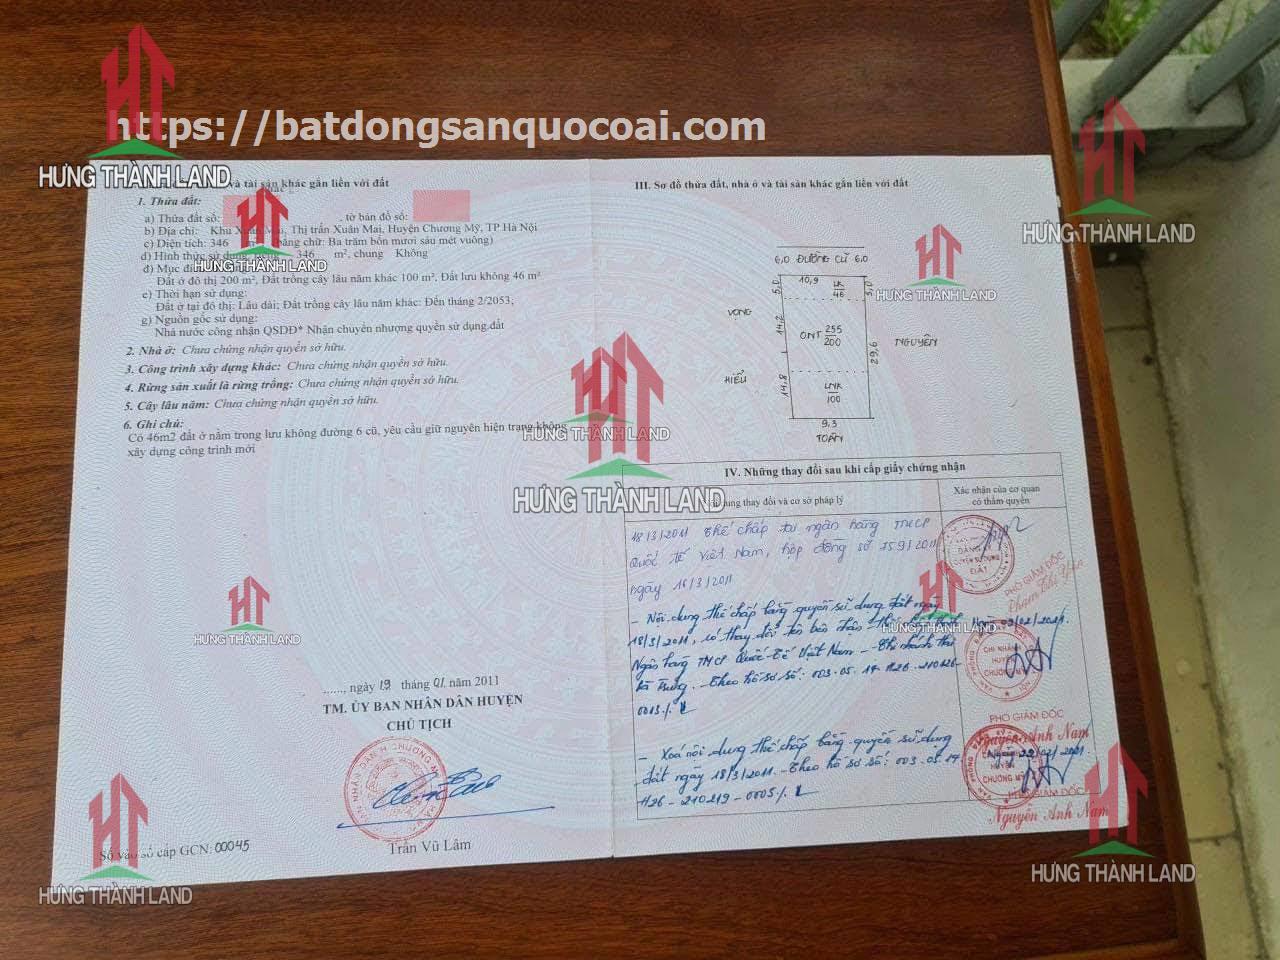 https://batdongsanquocoai.com
HƯNG THÀNH LAND
và tài sản khác gắn liền với đất
1. Thửa đất:
a) Thửa đất số: , tờ bản đồ số:
b) Địa chỉ: Khu Xuân Mai, Thị trấn Xuân Mai, Huyện Chương Mỹ, TP Hà Nội
c) Diện tích: 346 m², (bằng chữ: Ba trăm bốn mươi sáu mét vuông)
d) Hình thức sử dụng: riêng 346 m², chung Không
HƯNG THÀNH LAND
đ) Mục
Đất ở đô thị 200 m², Đất trồng cây lâu năm khác 100 m², Đất lưu không 46 m²
e) Thời hạn sử dụng:
Đất ở tại đô thị: Lâu dài; Đất trồng cây lâu năm khác: Đến tháng 2/2053;
g) Nguồn gốc sử dụng:
Nhà nước công nhận QSDĐ* Nhận chuyển nhượng quyền sử dụng đất
2. Nhà ở: Chưa chứng nhận quyền sở hữu.
3. Công trình xây dựng khác: Chưa chứng nhận quyền sở hữu.
4. Rừng sản xuất là rừng trồng: Chưa chứng nhận quyền sở hữu.
5. Cây lâu năm: Chưa chứng nhận quyền sở hữu.
6. Ghi chú:
Có 46m2 đất ở nằm trong lưu không đường 6 cũ, yêu cầu giữ nguyên hiện trạng không
xây dựng công trình mới
HƯNG THÀNH LAND
......, ngày 19 tháng 01 năm 2011
TM. ỦY BAN NHÂN DÂN HUYỆN
CHỦ TỊCH
Trần Vũ Lâm
Số vào sổ cấp GCN: 00045
HƯNG THÀNH LAND
III. Sơ đồ thửa đất, nhà ở và tài sản khác gắn liền với đất
HƯNG THÀNH LAND
6,0 ĐƯỜNG CŨ 6,0
10,9
5,0
LK
46
5,0
HƯNG THÀNH LAND
VỌNG
14,2
ONT 255
200
NGUYÊN
29,6
HIẾU
14,8
LNK
100
9,3
TOÀN
HƯNG THÀNH LAND
HƯNG THÀNH LAND
IV. Những thay đổi sau khi cấp giấy chứng nhận
Nội dung thay đổi và cơ sở pháp lý
Xác nhận của cơ quan
có thẩm quyền
18/3/2011 thế chấp tại ngân hàng TMCP
Quốc tế Việt Nam, hợp đồng số 159/2011
ngày 16/3/2011
ĐẤT
PHÓ GIÁM ĐỐC
- Nội dung thế chấp bằng quyền sử dụng đất ngày
18/3/2011, có thay đổi tên bên nhận thế chấp
HƯNG THÀNH LAND
Ngân hàng TMCP Quốc Tế Việt Nam - Chi nhánh Hai
Bà Trưng. - Theo hồ sơ số: 003.05.14.H26-210126-
0013./.
CHI NHÁNH
HUYỆN
CHƯƠNG MỸ
PHÓ GIÁM ĐỐC
Nguyễn Anh Nam
- Xoá nội dung thế chấp bằng quyền sử dụng
đất ngày 18/3/2011. - Theo hồ sơ số: 003.05.14.
H26-210219-0005./.
HUYỆN
CHƯƠNG MỸ
PHÓ GIÁM ĐỐC
Nguyễn Anh Nam
HƯNG THÀNH LAND